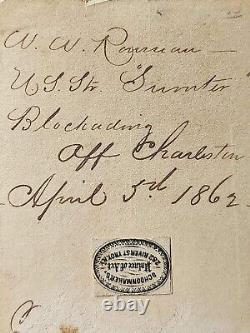 W. W. Rousseau —
U.S. Str. "Sumter
Blockading
off Charleston
— April 5th 1862 —
SCHOONMAKER'S
Palace of Art
282 RIVER ST TROY